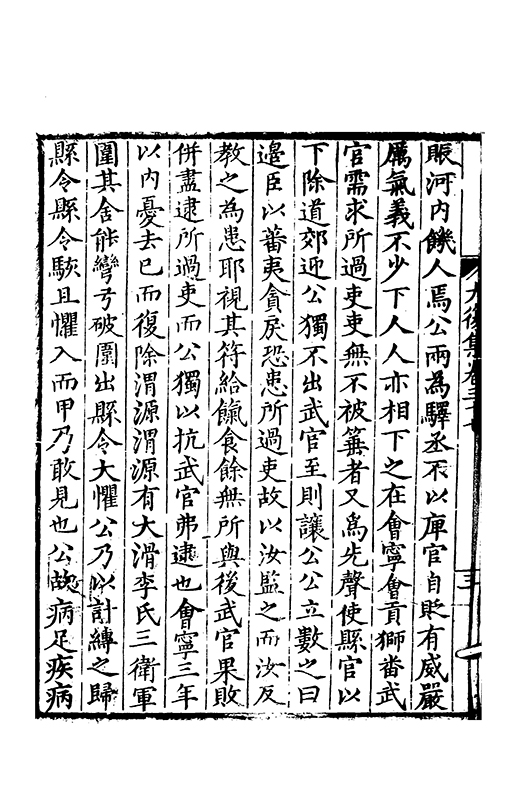 賑河內饑人焉公兩為驛丞不以庳官自貶有威嚴
厲氣義不少下人人亦相下之在會寧會貢獅畨武
官需求所過吏吏無不被箠者又為先聲使縣官以
下除道郊迎公獨不出武官至則讓公公立數之曰
邊臣以蕃夷貪戾恐患所過吏故以汝監之而汝反
教之為患耶視其符給餼食餘無所與後武官果敗
併盡逮所過吏而公獨以抗武官弗逮也會寧三年
以內憂去已而復除渭源渭源有大滑李氏三衛軍
圍其舍能彎弓破圍出縣令大懼公乃以計縛之歸
縣令縣令駭且懼入而甲乃敢見也公故病足疾病